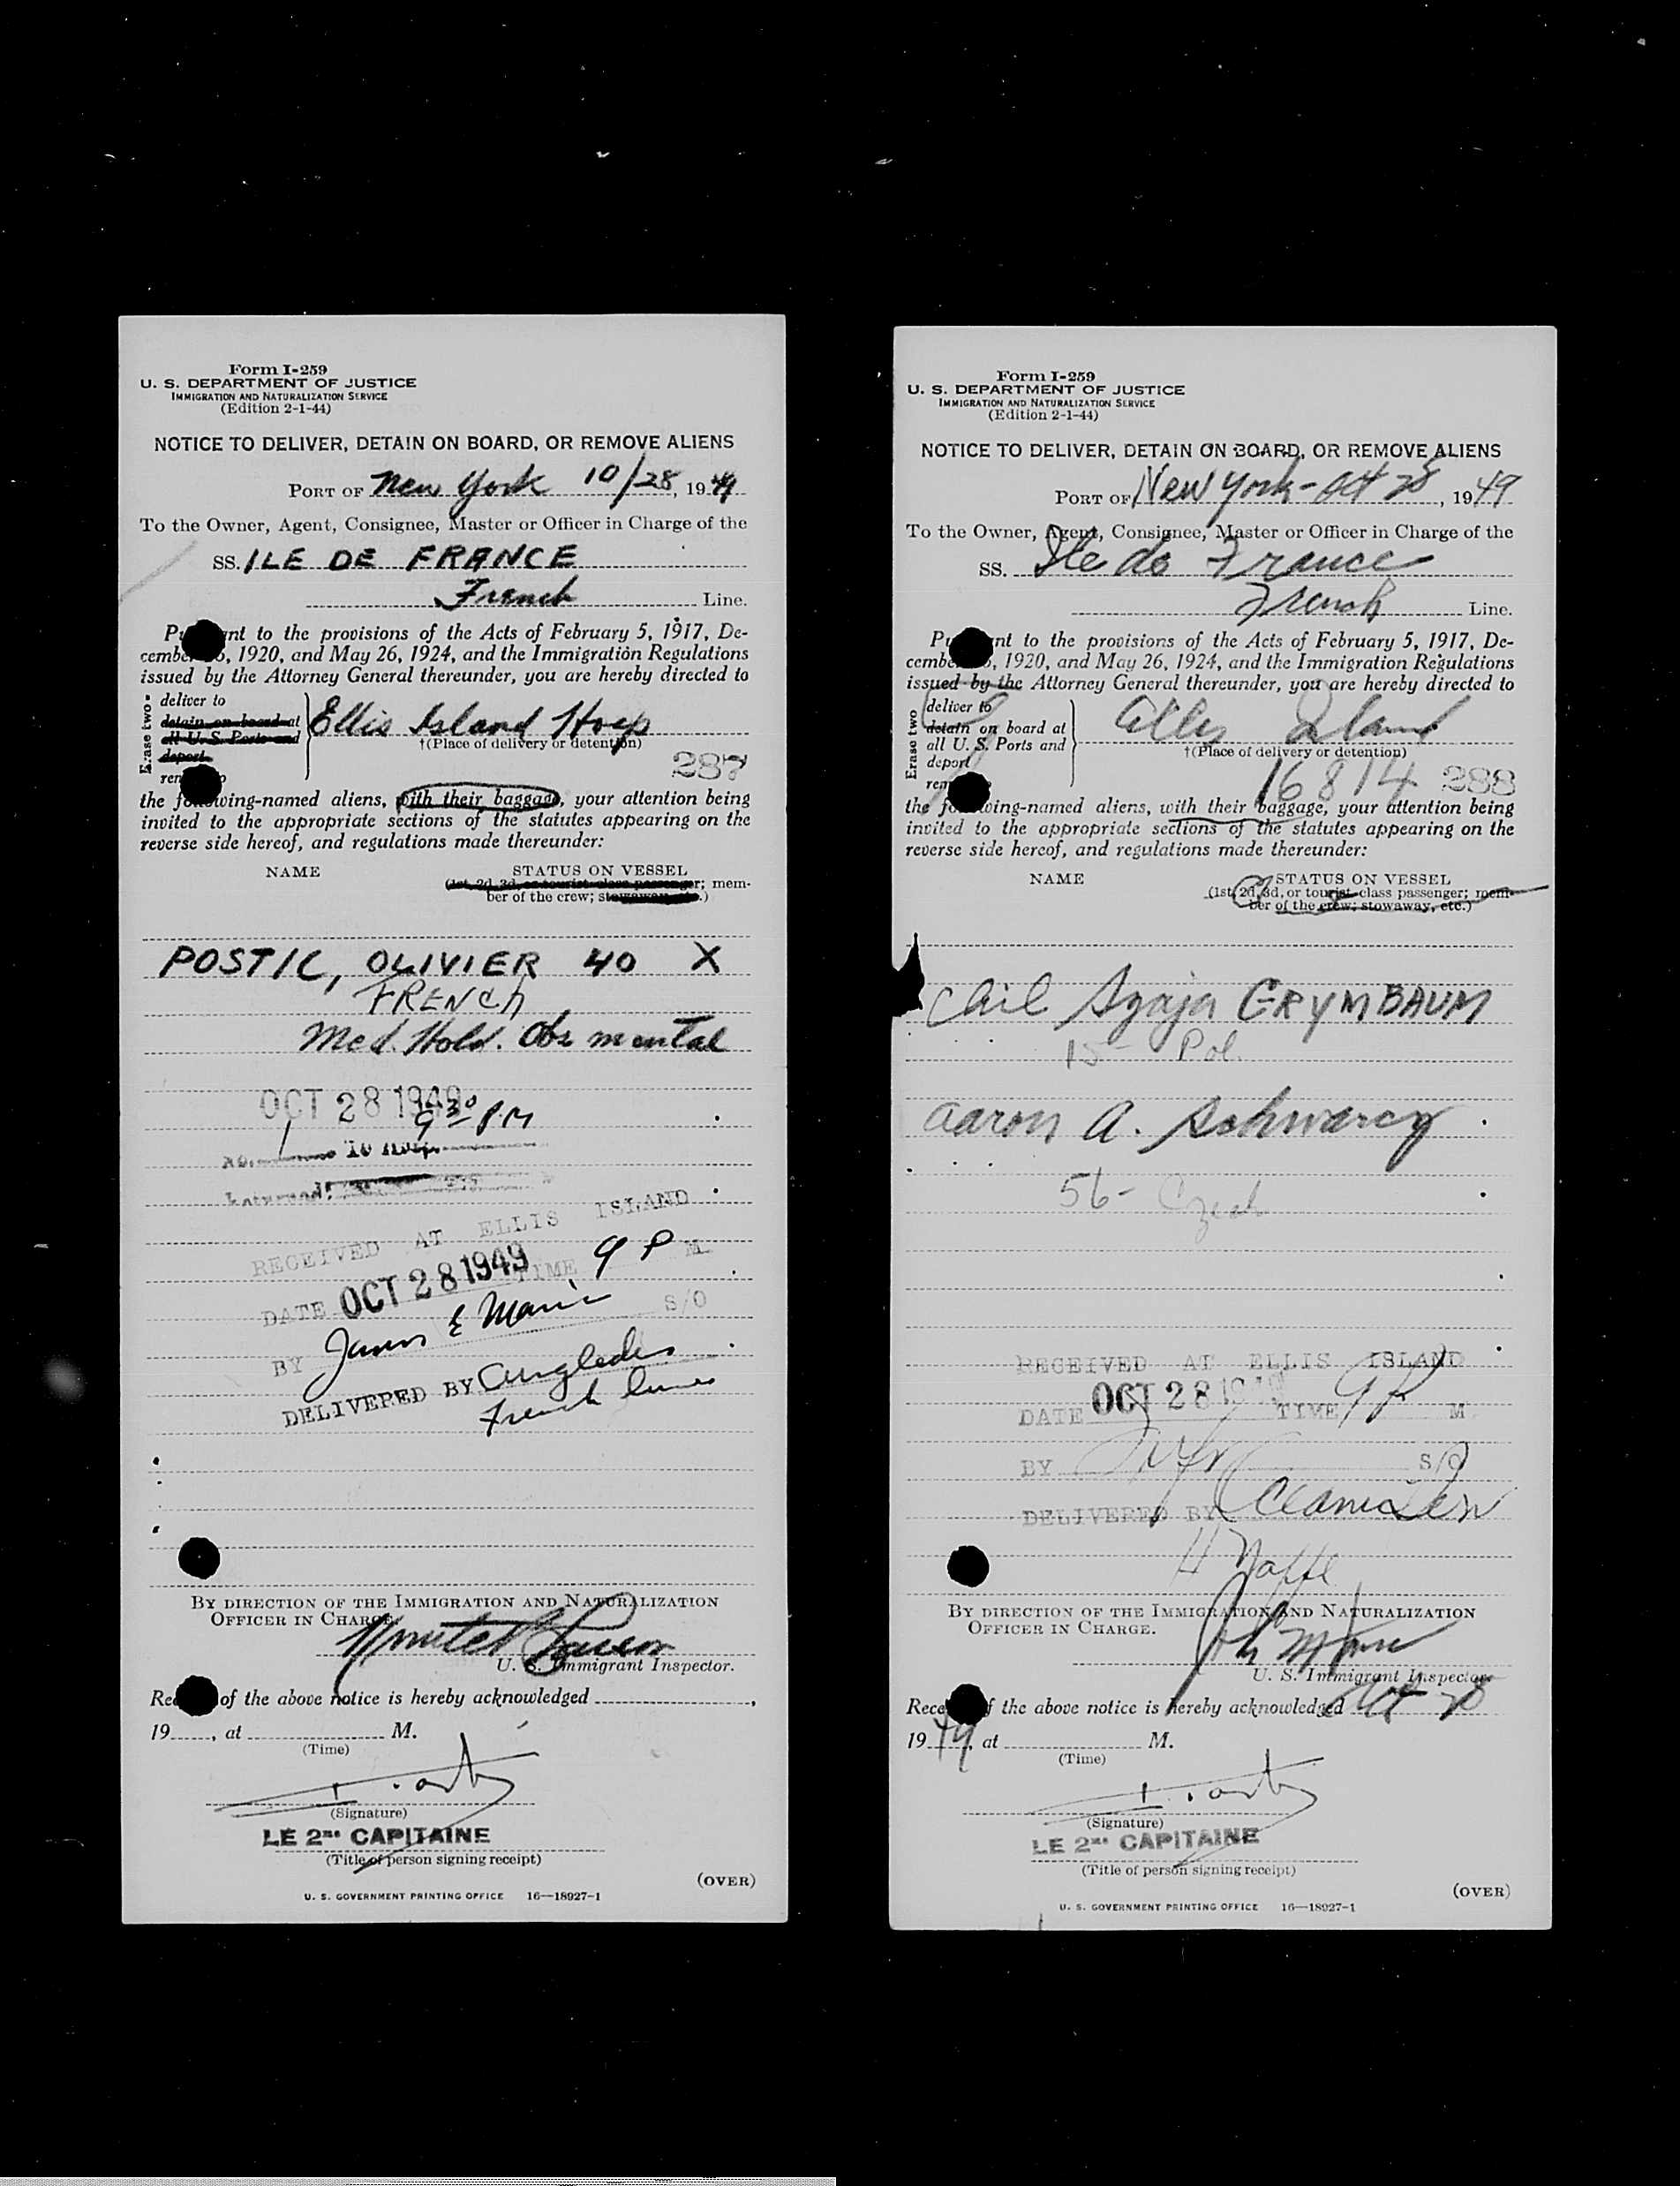 Form I-259
U. S. DEPARTMENT OF JUSTICE
IMMIGRATION AND NATURALIZATION SERVICE
(Edition 2-1-44)
NOTICE TO DELIVER, DETAIN ON BOARD, OR REMOVE ALIENS
PORT OF New York 10/28, 1949
To the Owner, Agent, Consignee, Master or Officer in Charge of the
SS. ILE DE FRANCE
French Line.
Pu nt to the provisions of the Acts of February 5, 1917, De-
cembe 5, 1920, and May 26, 1924, and the Immigration Regulations
issued by the Attorney General thereunder, you are hereby directed to
Erase two
deliver to
detain on board at
all U. S. Ports and
deport
Ellis Island Hosp
†(Place of delivery or detention)
287
the following-named aliens, with their baggage, your attention being
invited to the appropriate sections of the statutes appearing on the
reverse side hereof, and regulations made thereunder:
NAME STATUS ON VESSEL
(1st, 2d, 3d, or tourist-class passenger; mem-
ber of the crew; stowaway, etc.)
POSTIC, OLIVIER 40 X
FRENCH
Med. Hold. Obs mental
OCT 28 1949
9 30 PM
RECEIVED AT ELLIS ISLAND
DATE OCT 28 1949 TIME 9 P M
BY James E S/O
DELIVERED BY
French Lines
BY DIRECTION OF THE IMMIGRATION AND NATURALIZATION
OFFICER IN CHARGE
U. S. Immigrant Inspector.
Rec of the above notice is hereby acknowledged ,
19 , at M.
(Time)
(Signature)
LE 2me CAPITAINE
(Title of person signing receipt)
(OVER)
U. S. GOVERNMENT PRINTING OFFICE 16—18927-1
Form I-259
U. S. DEPARTMENT OF JUSTICE
IMMIGRATION AND NATURALIZATION SERVICE
(Edition 2-1-44)
NOTICE TO DELIVER, DETAIN ON BOARD, OR REMOVE ALIENS
PORT OF New York - Oct 28, 1949
To the Owner, Agent, Consignee, Master or Officer in Charge of the
SS. Ile de France
French Line.
Pu nt to the provisions of the Acts of February 5, 1917, De-
cemb , 1920, and May 26, 1924, and the Immigration Regulations
issued by the Attorney General thereunder, you are hereby directed to
Erase two
deliver to
detain on board at
all U. S. Ports and
deport
Ellis Island
†(Place of delivery or detention)
16814 288
the following-named aliens, with their baggage, your attention being
invited to the appropriate sections of the statutes appearing on the
reverse side hereof, and regulations made thereunder:
NAME STATUS ON VESSEL
(1st, 2d, 3d, or tourist-class passenger; mem-
ber of the crew; stowaway, etc.)
Chil Szaja GRYMBAUM
15 Pol.
Aaron A. Schwarcz
56 - Czech
RECEIVED AT ELLIS ISLAND
DATE OCT 28 1949 TIME 9 P M
BY S/O
DELIVERED BY
BY DIRECTION OF THE IMMIGRATION AND NATURALIZATION
OFFICER IN CHARGE.
U. S. Immigrant Inspector
Rece f the above notice is hereby acknowledged Oct 28
1949, at M.
(Time)
(Signature)
LE 2me CAPITAINE
(Title of person signing receipt)
(OVER)
U. S. GOVERNMENT PRINTING OFFICE 16—18927-1